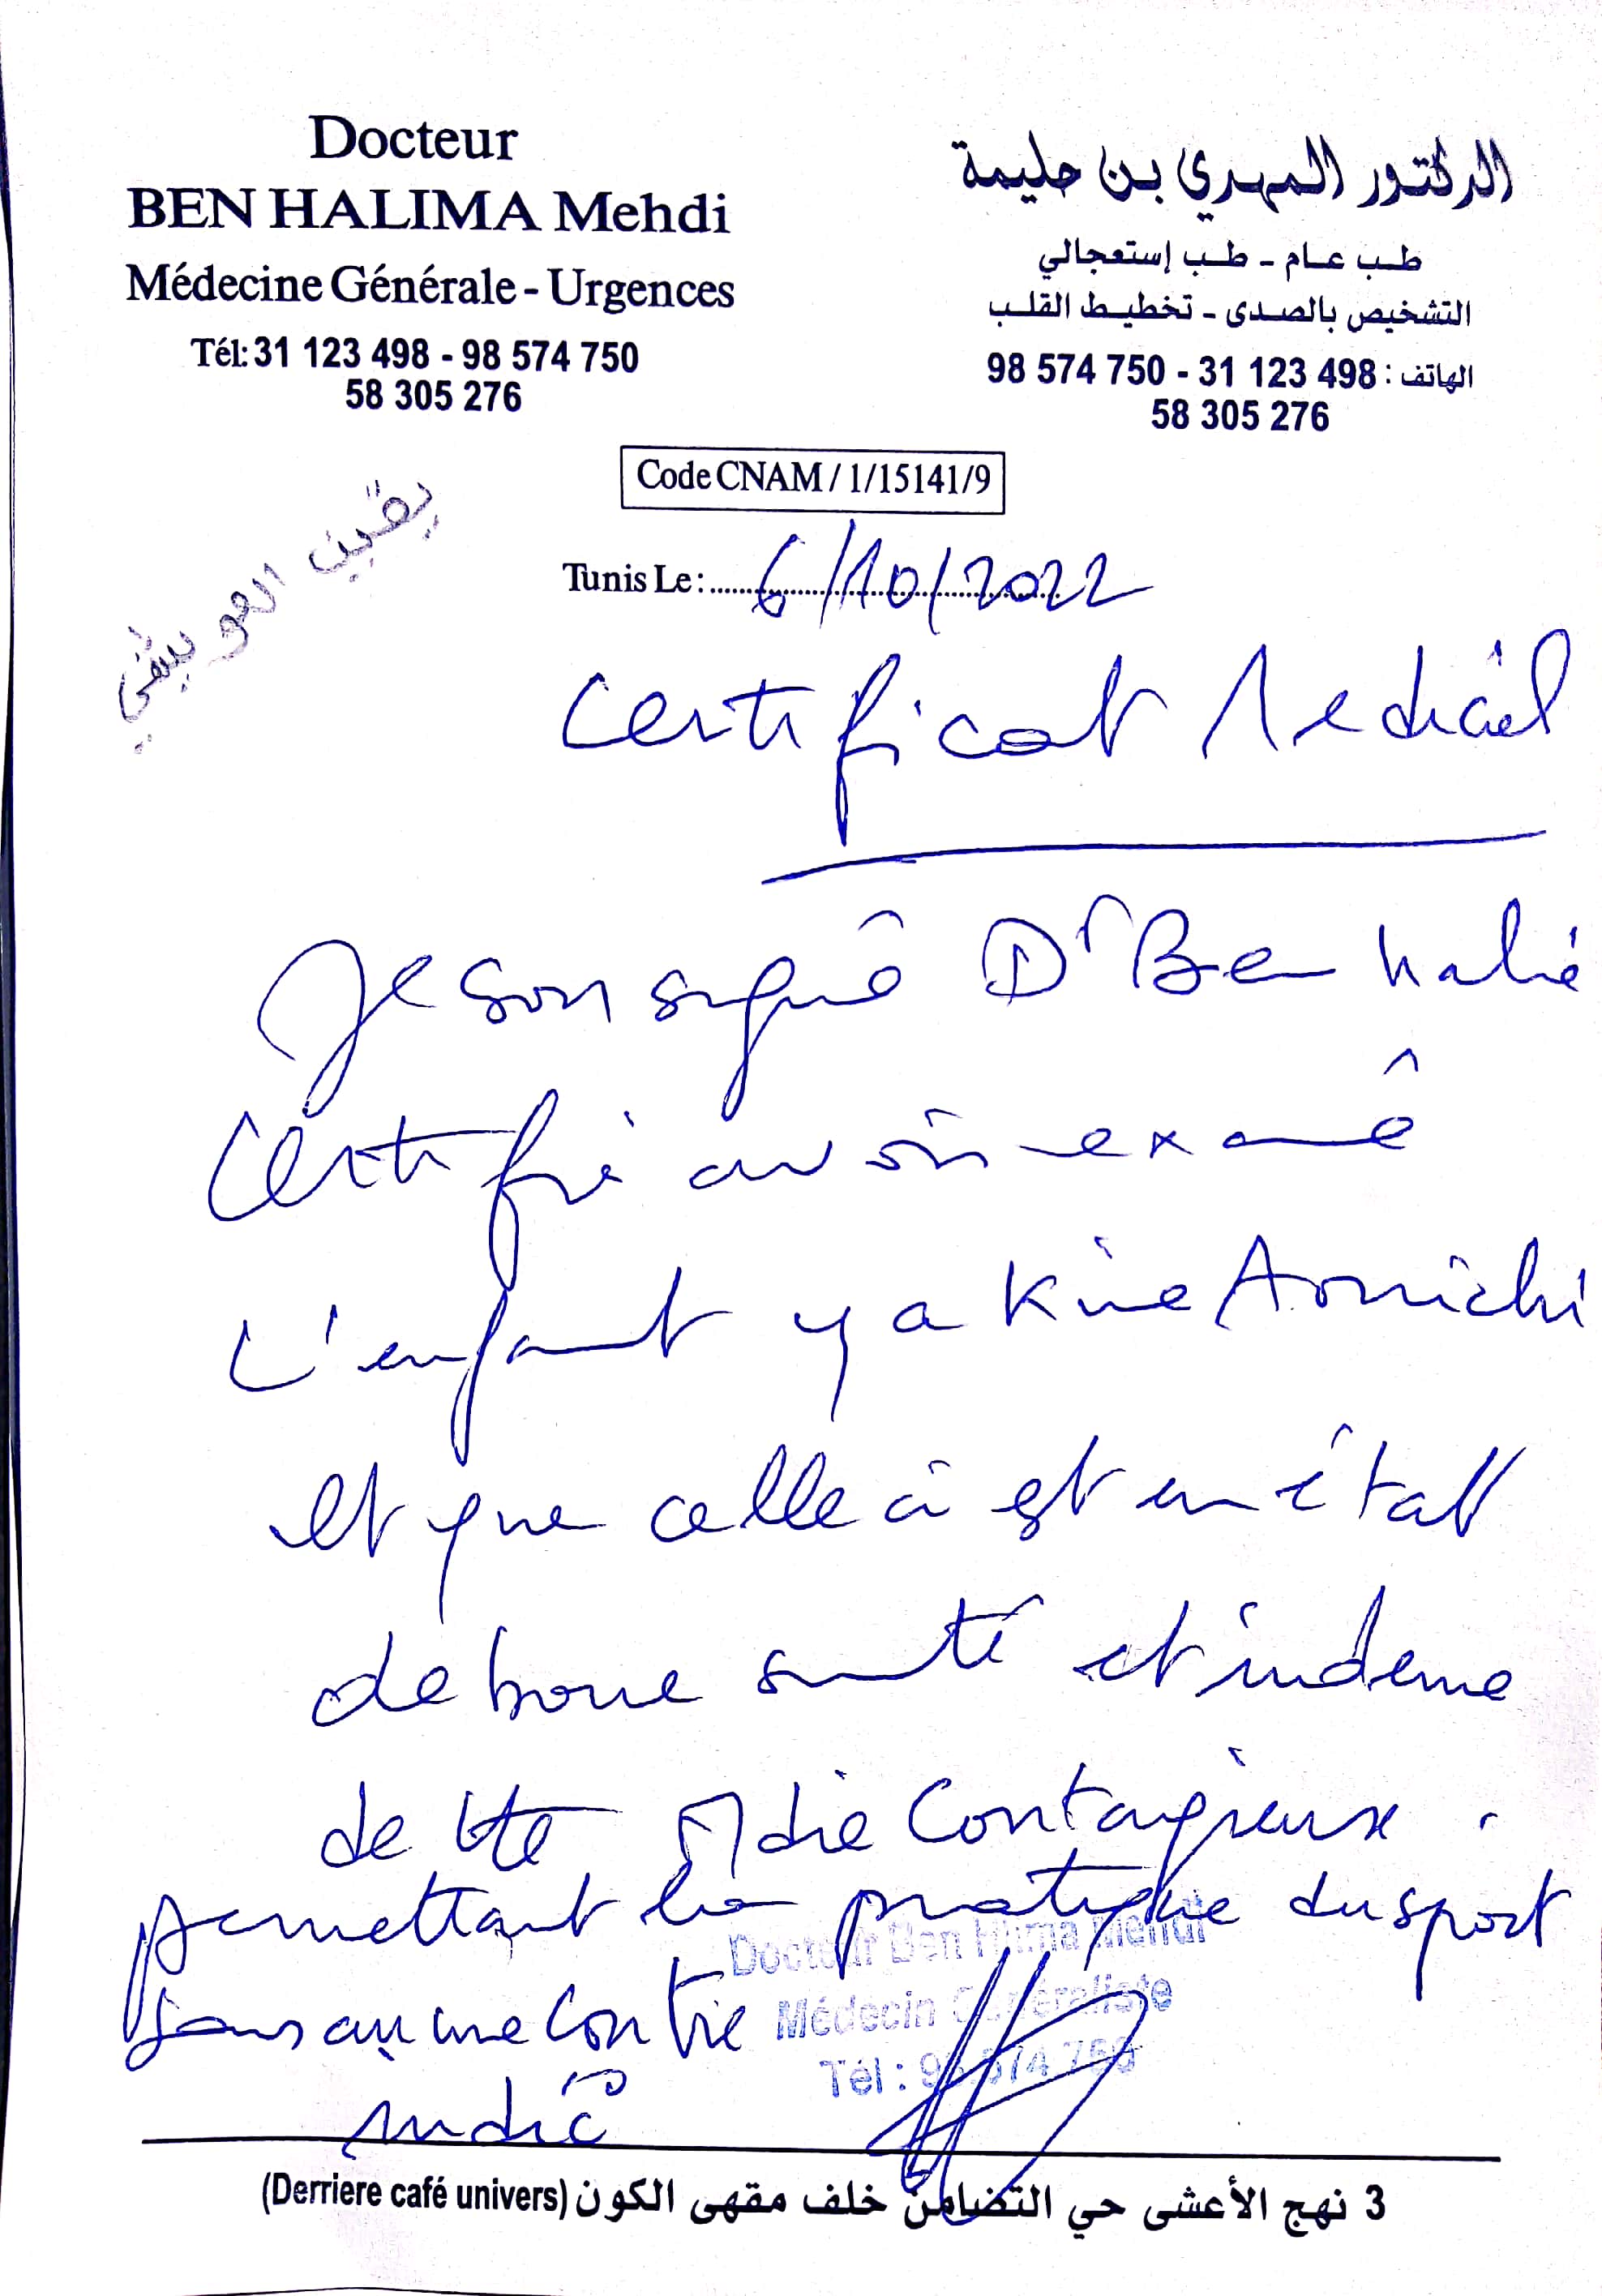 Docteur
BEN HALIMA Mehdi
Médecine Générale - Urgences
Tél: 31 123 498 - 98 574 750
58 305 276
الدكتور المهدي بن حليمة
طب عام - طب إستعجالي
التشخيص بالصدى - تخطيط القلب
الهاتف : 31 123 498 - 98 574 750
58 305 276
Code CNAM / 1/15141/9
يقين العويشي
Tunis Le : 6/10/2022
Certificat Medical
Je sousigné Dr Ben halié
Certifie avoir examé
L'enfant yakine Aouichi
et que celle ci est en état
de bone santé et indeme
de tte Mdie Contagieuse.
permettant la pratique du sport
sans aucune Contre
indic°
Docteur Ben Hlima Mehdi
Médecin Généraliste
Tél : 98 574 750
3 نهج الأعشى حي التضامن خلف مقهى الكون (Derriere café univers)